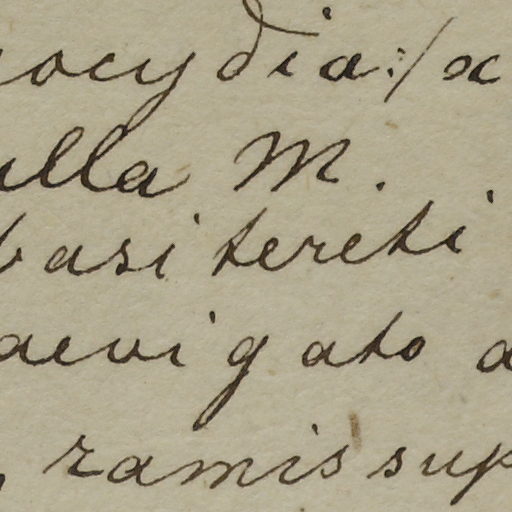 ocydia:/x
ulla M.
basi tereti
aevigato a
, ramis sup